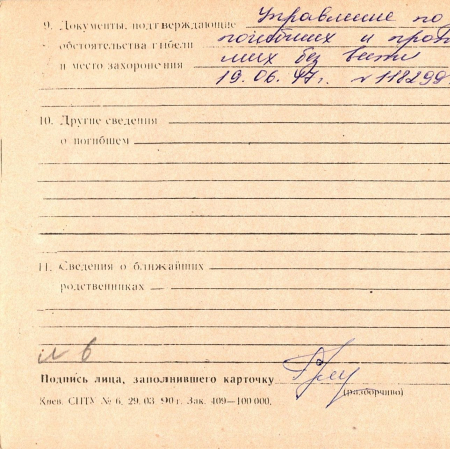 9. Документы, подтверждающие Управление по
обстоятельства гибели погибших и проп
и место захоронения мих без вести
19. 06. 47 г. №118299
10. Другие сведения
о погибшем
11. Сведения о ближайших
родственниках
№ 6
Подпись лица, заполнившего карточку
(разборчиво)
Киев. СПТУ № 6. 29. 03. 90 г. Зак. 409—100 000.